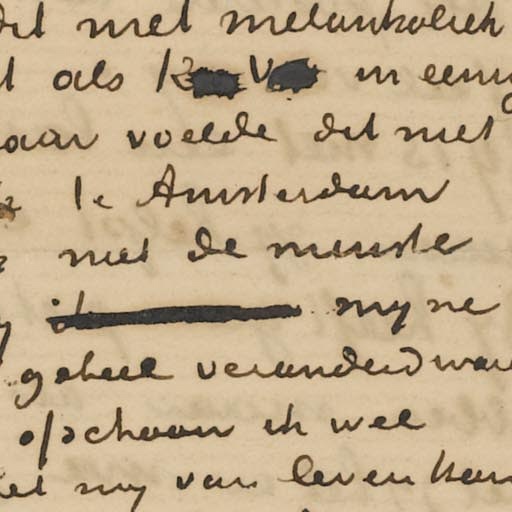 dit met melankoliek
als K V in eenig
aar voelde dit niet
te Amsterdam
niet de minste
myne
geheel veranderd was
ofschoon ik wel
my van leven kan